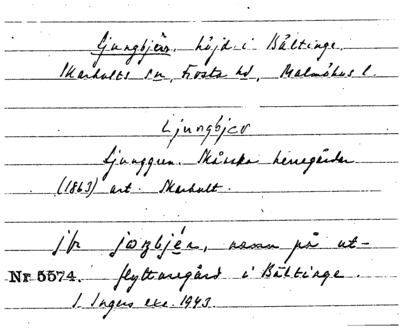 Ljungbjär. höjd i Bältinge.
Skarhults sn, Frosta hd, Malmöhus l.
Ljungbjer
Ljunggren. Skånska herregårdar
(1863) art. Skarhult.
jfr joŋbjér, namn på ut-
Nr 5574. flyttaregård i Bältinge.
J. Ingers exc. 1943.